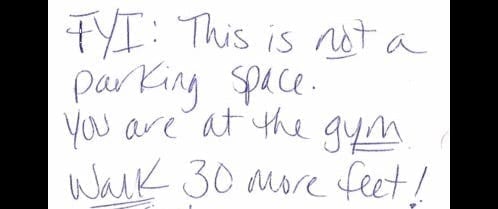 FYI: This is not a
parking space.
You are at the gym
Walk 30 more feet!